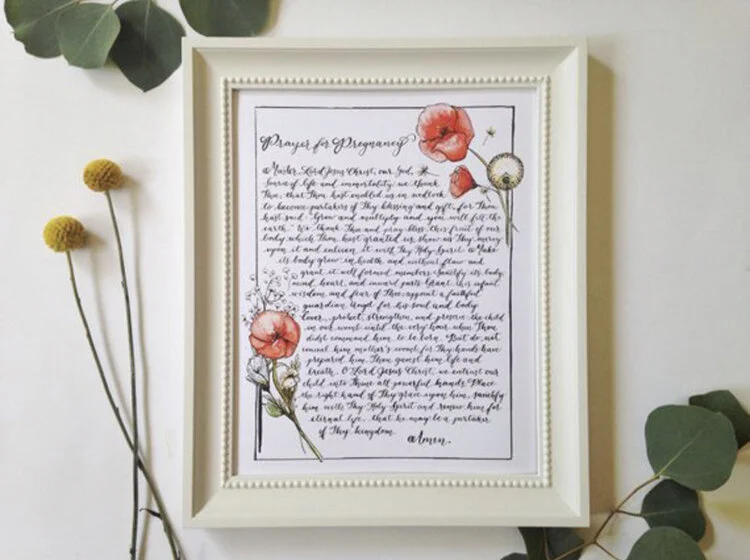 Prayer for Pregnancy
O Master, Lord Jesus Christ, our God,
Source of life and immortality, we thank
Thee, that Thou hast enabled us in wedlock
to become partakers of Thy blessing and gift; for Thou
hast said: "Grow and multiply and you will fill the
earth." We thank Thee and pray: bless this fruit of our
body which Thou hast granted us; show us Thy mercy
upon it and enliven it with Thy Holy Spirit. Make
its body grow in health and without flaw and
grant it well formed members. Sanctify its body,
mind, heart, and inward parts. Grant this infant
wisdom and fear of Thee; appoint a faithful
guardian Angel for his soul and body.
Cover, protect, strengthen, and preserve the child
in our womb until the very hour when Thou
didst command him to be born. But do not
conceal him mother's womb; for Thy hands have
prepared him, Thou gavest him life and
breath. O Lord Jesus Christ, we entrust our
child into Thine all powerful hands. Place
the right hand of Thy grace upon him, sanctify
him with Thy Holy Spirit and renew him for
eternal life, that he may be a partaker
of Thy kingdom.
Amen.